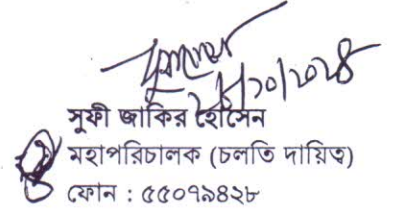 সুফী জাকির হোসেন
মহাপরিচালক (চলতি দায়িত্ব)
ফোন : ৫৫০৭৯৪২৮